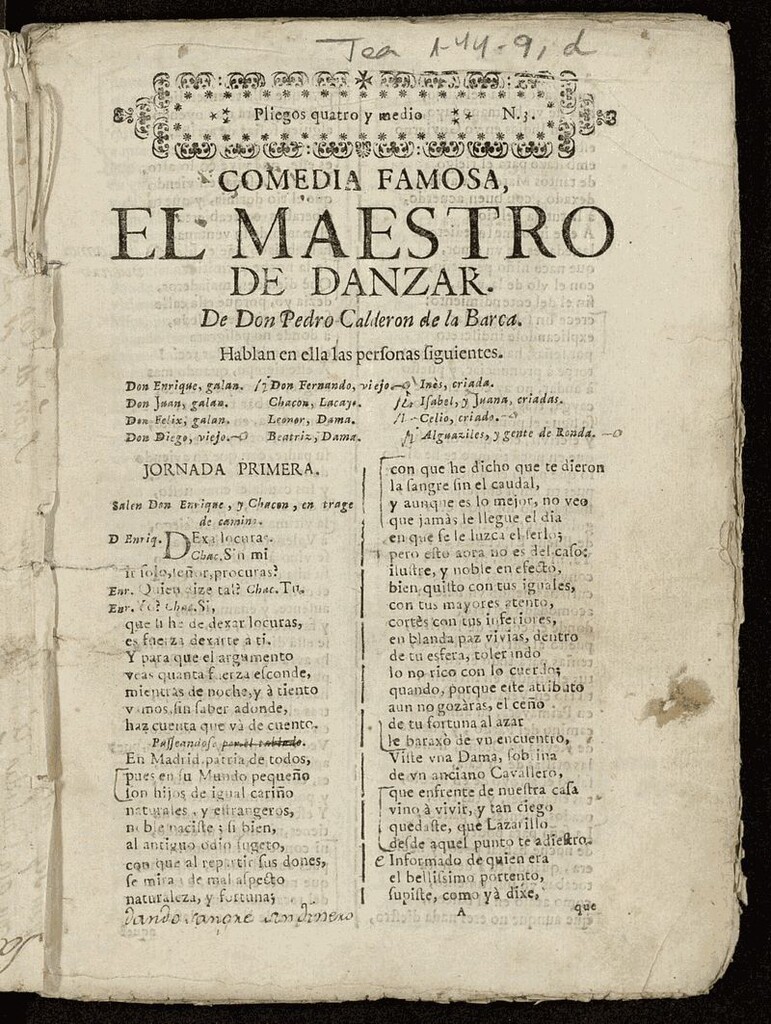 Tea 1-44-9, d
Pliegos quatro y medio N.3.
COMEDIA FAMOSA,
EL MAESTRO
DE DANZAR.
De Don Pedro Calderon de la Barca.
Hablan en ella las personas siguientes.
Don Enrique, galan. Don Fernando, viejo. Inès, criada.
Don Juan, galan. Chacon, Lacayo. Isabel, y Juana, criadas.
Don Felix, galan. Leonor, Dama. Celio, criado.
Don Diego, viejo. Beatriz, Dama. Alguaziles, y gente de Ronda.
JORNADA PRIMERA.
Salen Don Enrique, y Chacon, en trage
de camino.
D Enriq. DExa locuras.
Chac. Sin mi
solo, señor, procuras?
Enr. Quien dize tal? Chac. Tu.
Enr. Yo? Chac. Si,
que si he de dexar locuras,
es fuerza dexarte a ti.
Y para que el argumento
veas quanta fuerza esconde,
mientras de noche, y à tiento
vamos, sin saber adonde,
haz cuenta que và de cuento.
Passeandose por el tablado.
En Madrid, patria de todos,
pues en su Mundo pequeño
son hijos de igual cariño
naturales, y estrangeros,
noble naciste; si bien,
al antiguo odio sugeto,
con que al repartir sus dones,
se mira de mal aspecto
naturaleza, y fortuna;
dando sangre sin dinero
con que he dicho que te dieron
la sangre sin el caudal,
y aunque es lo mejor, no veo
que jamàs le llegue el dia
en que se le luzca el serlo;
pero esto aora no es del caso:
ilustre, y noble en efecto,
bien quisto con tus iguales,
con tus mayores atento,
cortès con tus inferiores,
en blanda paz vivias, dentro
de tu esfera, tolerando
lo no rico con lo cuerdo;
quando, porque este atributo
aun no gozàras, el ceño
de tu fortuna al azar
le baraxò de vn encuentro,
Viste vna Dama, sobrina
de vn anciano Cavallero,
que enfrente de nuestra casa
vino à vivir, y tan ciego
quedaste, que Lazarillo
desde aquel punto te adiestro.
Informado de quien era
el bellissimo portento,
supiste, como yà dixe,
A que